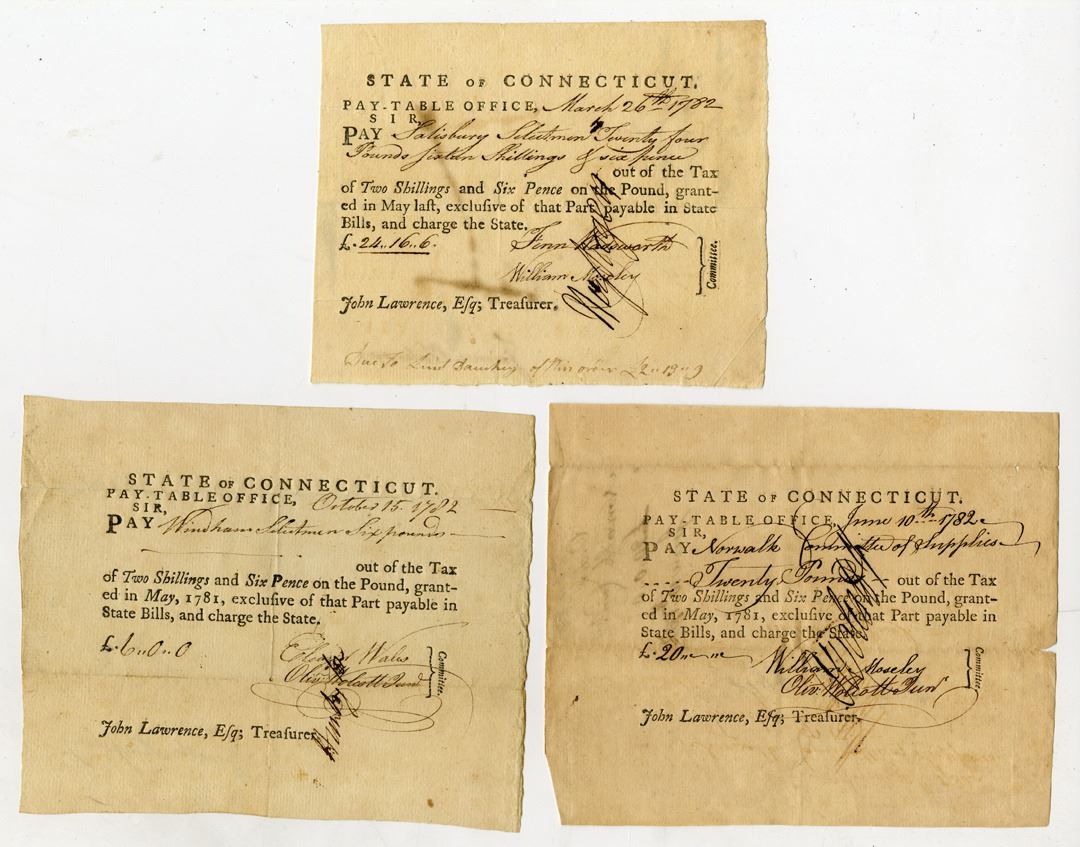 STATE OF CONNECTICUT.
PAY-TABLE OFFICE, March 26th 1782
SIR,
PAY Salisbury Selectmen Twenty four
Pounds sixteen Shillings & six pence
out of the Tax
of Two Shillings and Six Pence on the Pound, grant-
ed in May laſt, excluſive of that Part payable in State
Bills, and charge the State.
£. 24..16..6.
Fenn Wadsworth
William Moseley
Committee.
John Lawrence, Eſq; Treaſurer.
Due to of this order £2"13"9
STATE OF CONNECTICUT.
PAY-TABLE OFFICE, October 15. 1782
SIR,
PAY Windham Selectmen Six pounds
out of the Tax
of Two Shillings and Six Pence on the Pound, grant-
ed in May, 1781, excluſive of that Part payable in
State Bills, and charge the State.
£. 6"0"0
Eleazr Wales
Olivr Wolcott Junr
Committee.
John Lawrence, Eſq; Treaſurer
STATE OF CONNECTICUT.
PAY-TABLE OFFICE, June 10th 1782
SIR,
PAY Norwalk Committee of Supplies
Twenty Pounds — out of the Tax
of Two Shillings and Six Pence on the Pound, grant-
ed in May, 1781, excluſive of that Part payable in
State Bills, and charge the State.
£. 20
William Moseley
Olivr Wolcott Junr
Committee.
John Lawrence, Eſq; Treaſurer.